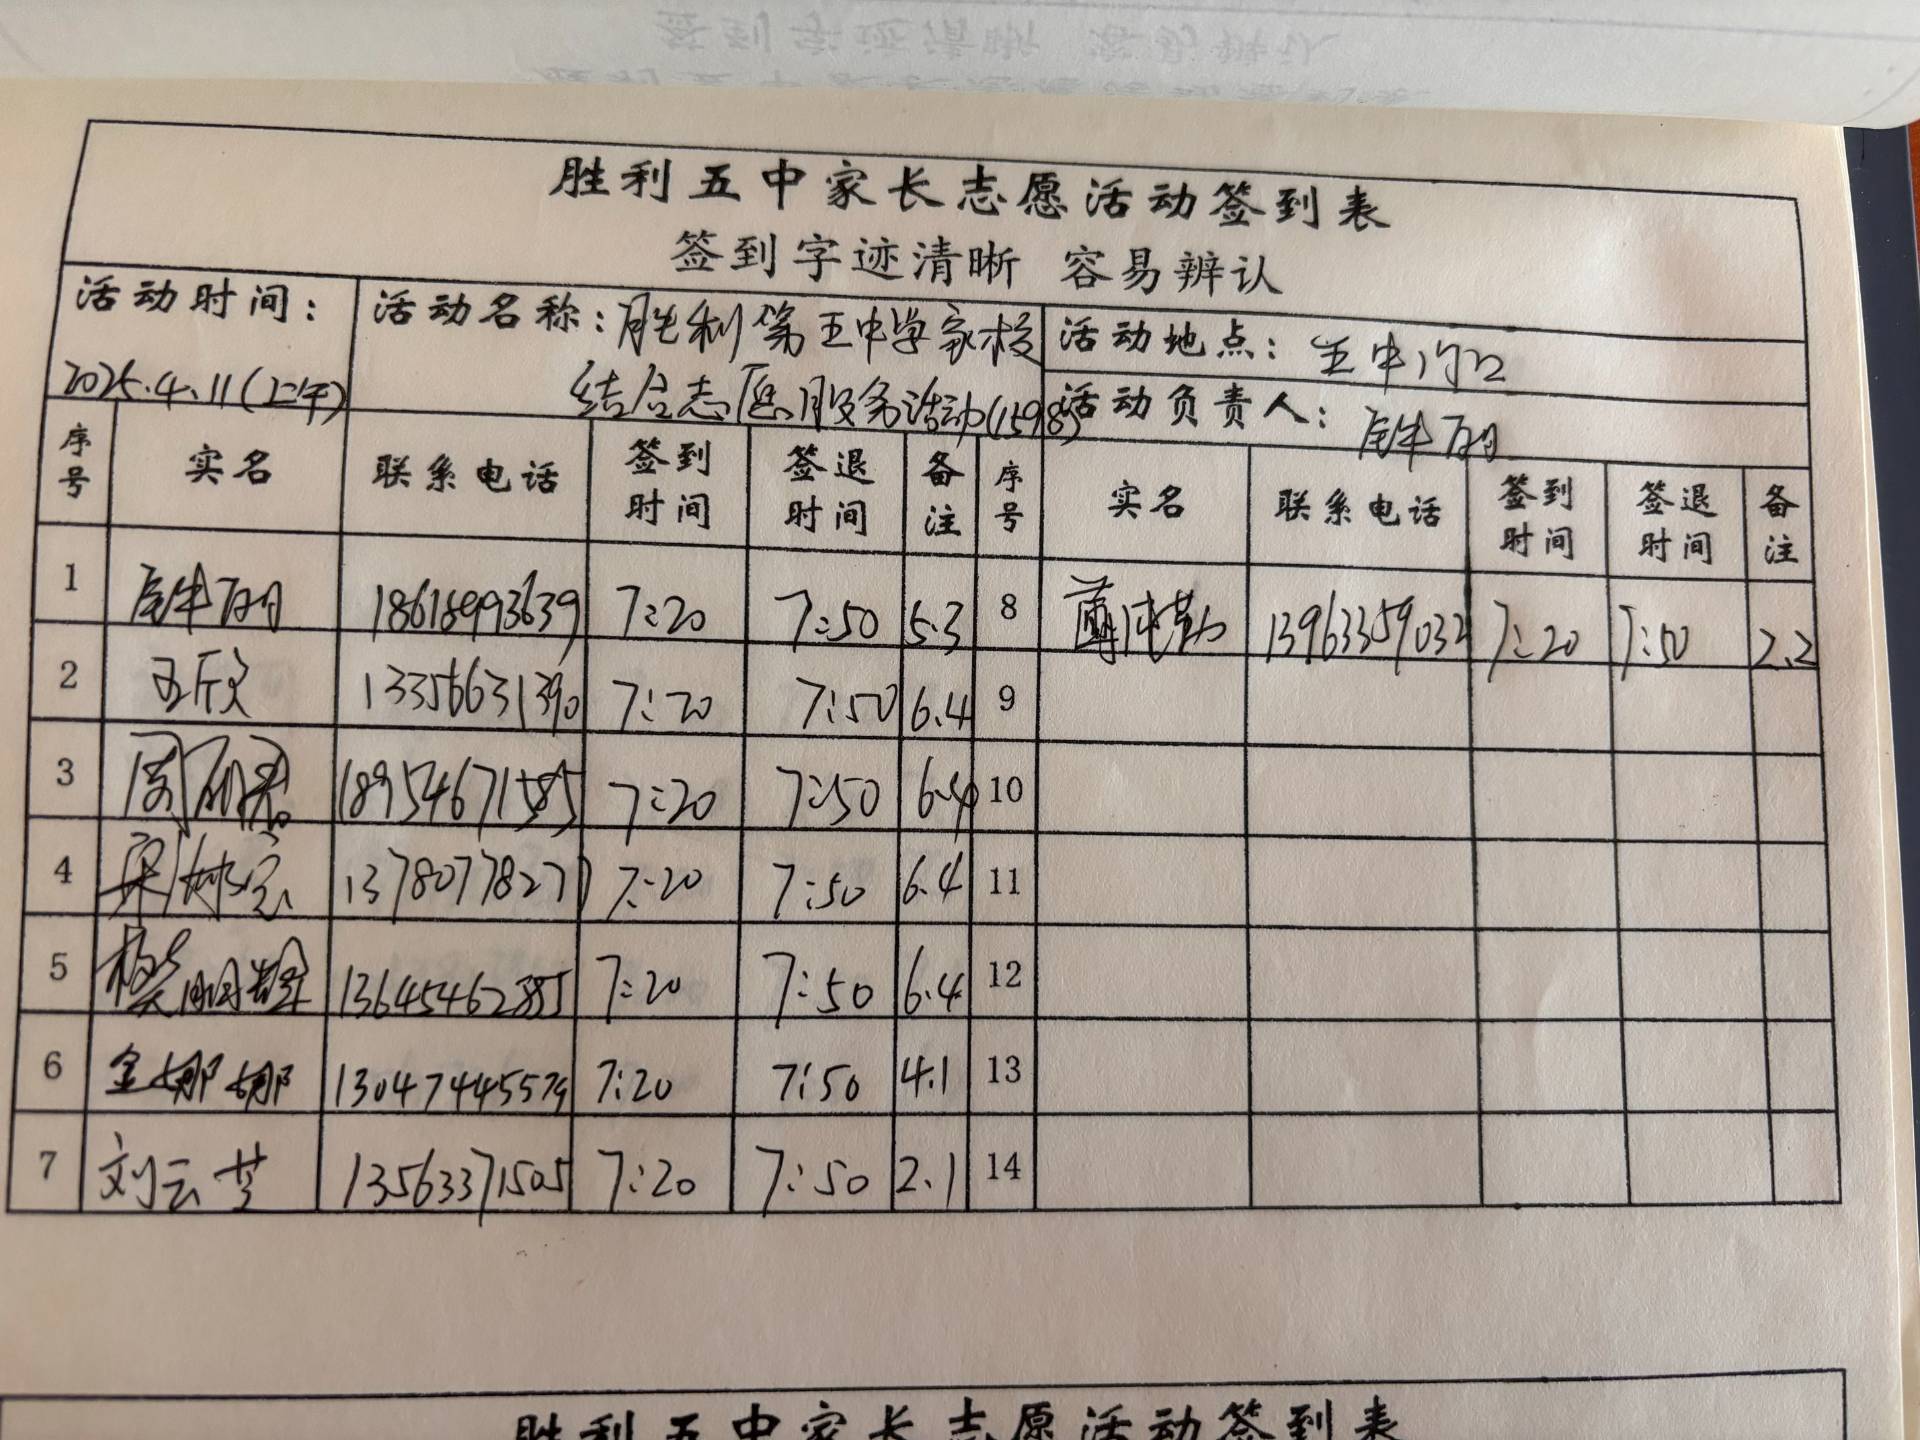 胜利五中家长志愿活动签到表
签到字迹清晰 容易辨认
活动时间：
2025.4.11(上午)
活动名称：胜利第五中学家校
结合志愿服务活动(1598)
活动地点：五中门口
活动负责人：
序号 实名 联系电话 签到时间 签退时间 备注 序号 实名 联系电话 签到时间 签退时间 备注
1 18618993639 7:20 7:50 5.3 8 13963359032 7:20 7:50 2.2
2 王欣 13356631390 7:20 7:50 6.4 9
3 周丽君 18954671585 7:20 7:50 6.4 10
4 梁 13780778277 7:20 7:50 6.4 11
5 13645462885 7:20 7:50 6.4 12
6 金娜娜 13047445579 7:20 7:50 4.1 13
7 刘云芝 13563371505 7:20 7:50 2.1 14
胜利五中家长志愿活动签到表